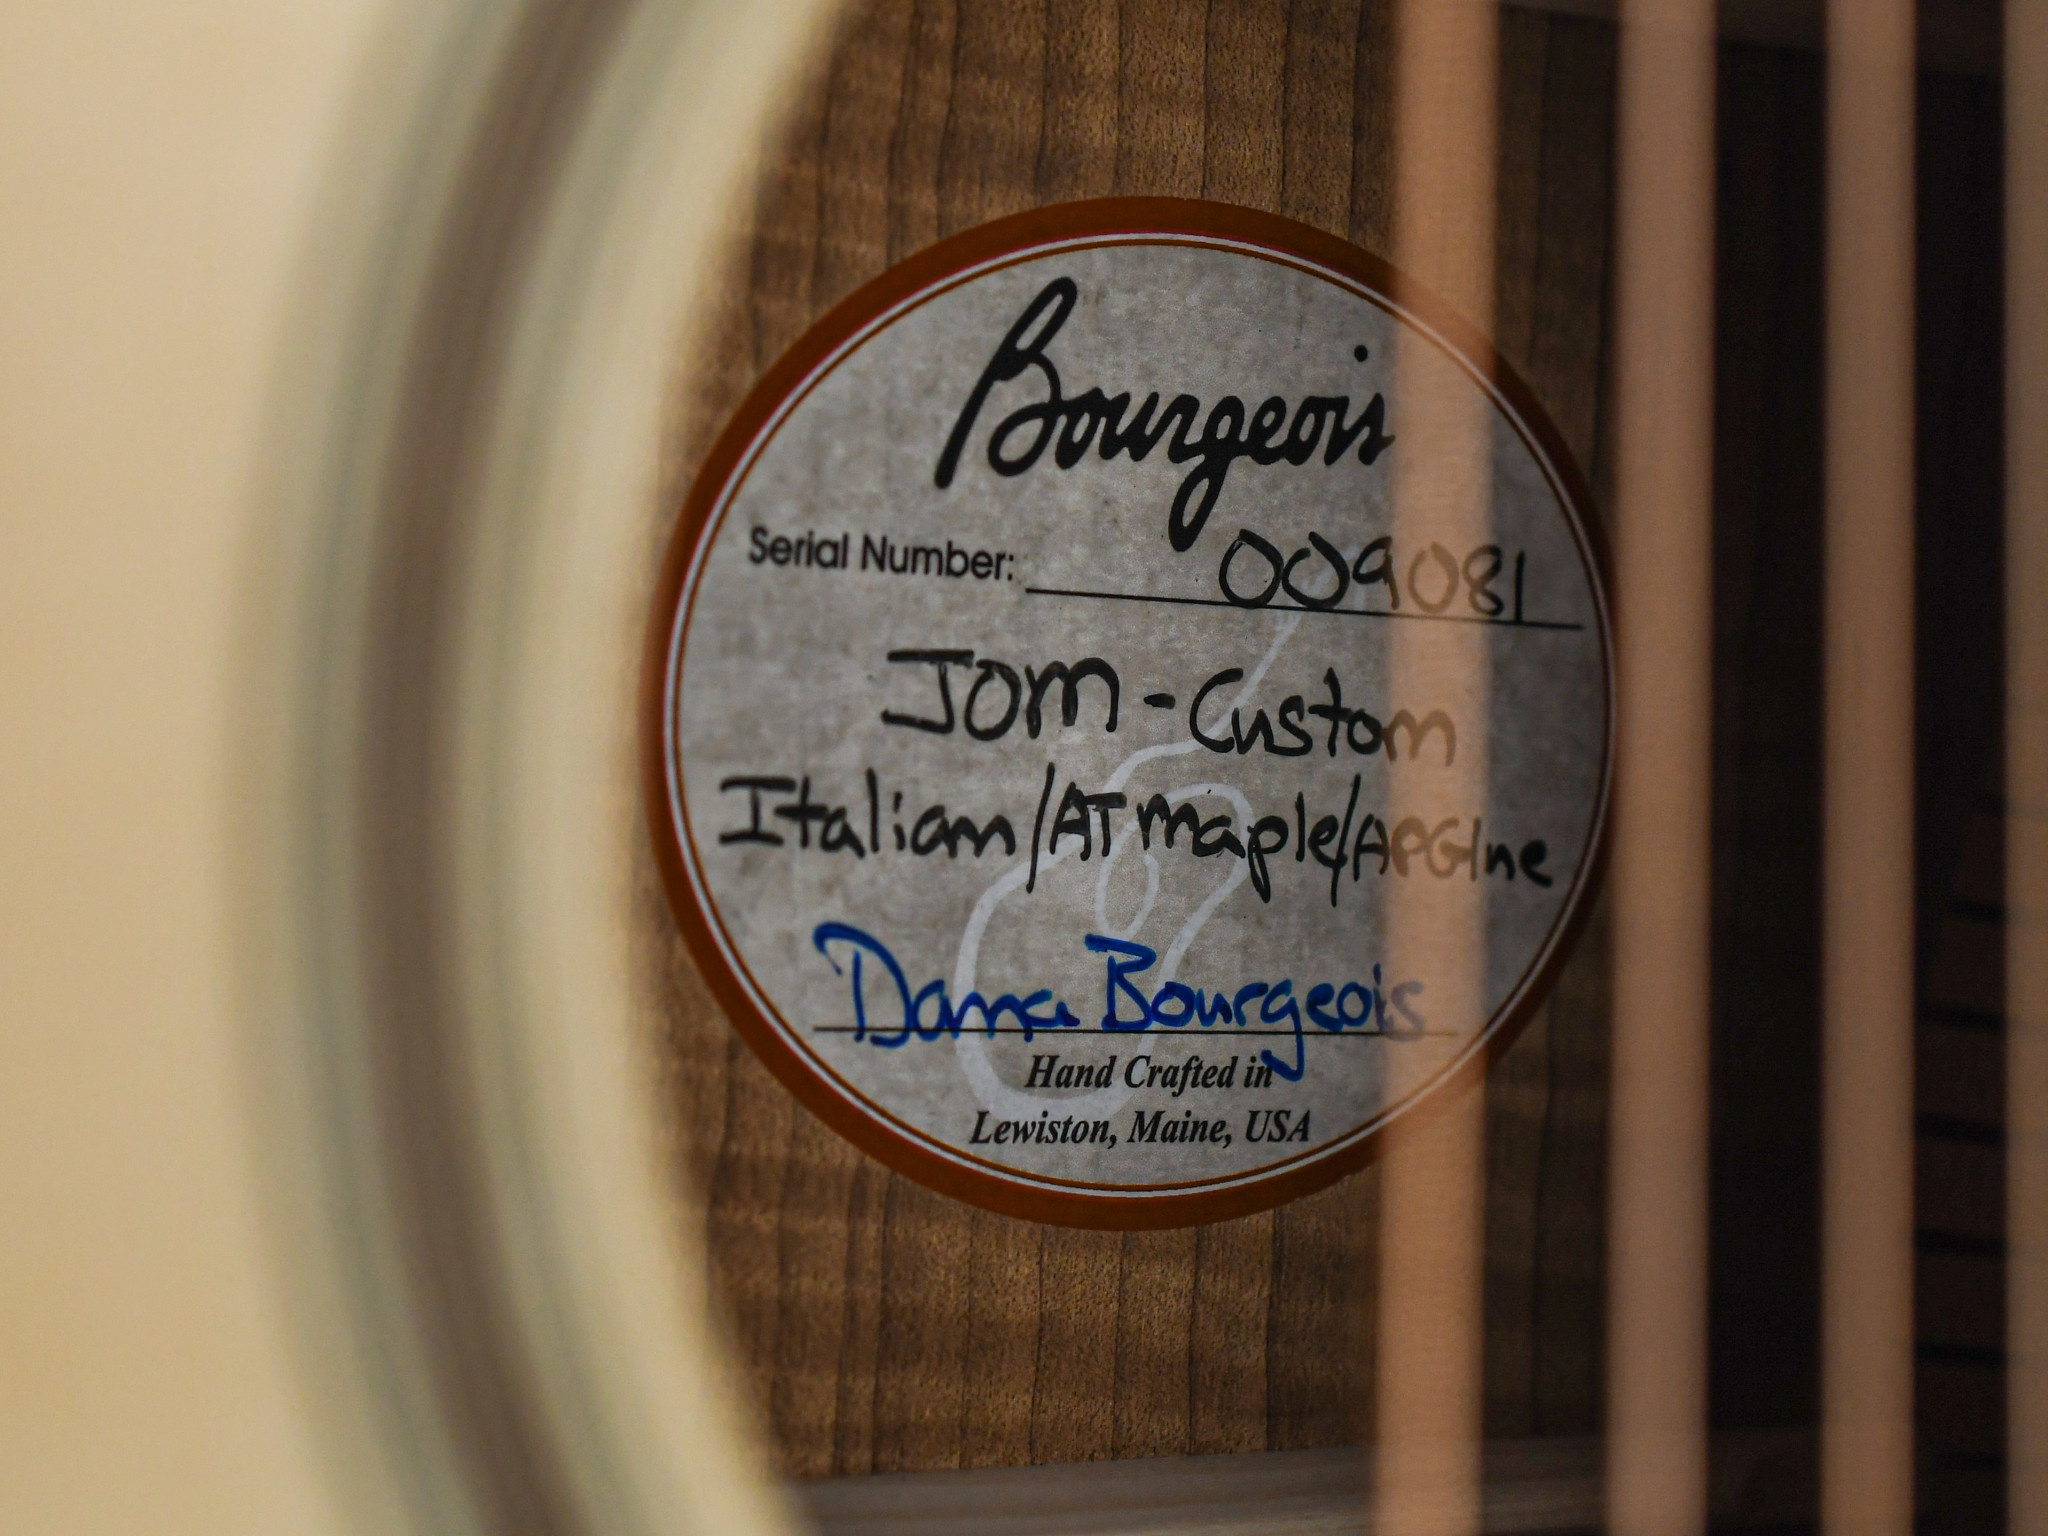 Bourgeois
Serial Number: 009081
JOM - Custom
Italian/AT Maple/
Dana Bourgeois
Hand Crafted in
Lewiston, Maine, USA